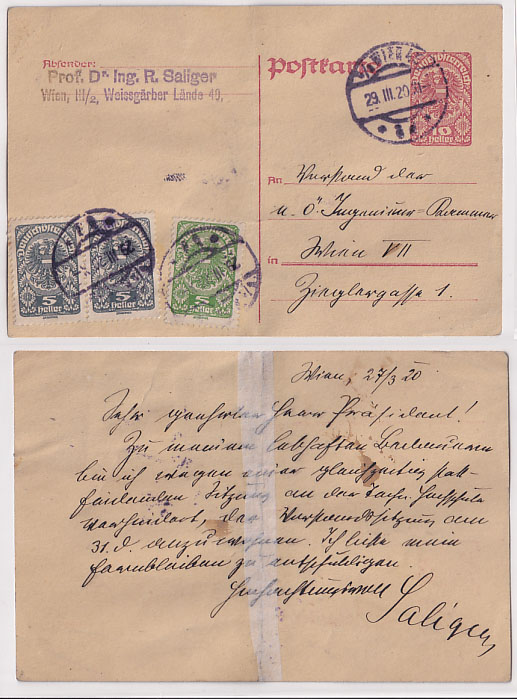 Absender:
Prof. Dr Ing. R. Saliger
Wien, III/2, Weissgärber Lände 49,
Postkarte
WIEN
29.III.20
Deutschösterreich
10
Heller
An Vorstand der
n. ö. Ingenieur-Kammer
in Wien VII
Zieglergasse 1.
Deutschösterreich
5
Heller
Deutschösterreich
5
Heller
5
Heller
Wien, 27/3 20
Sehr geehrter Herr Präsident!
Zu meinem lebhaften Bedauern
bin ich wegen einer gleichzeitig statt-
findenden Sitzung an der Techn. Hochschule
verhindert, der Vorstandssitzung am
31. d. anzuwohnen. Ich bitte mein
Fernbleiben zu entschuldigen.
Hochachtungsvoll
Saliger